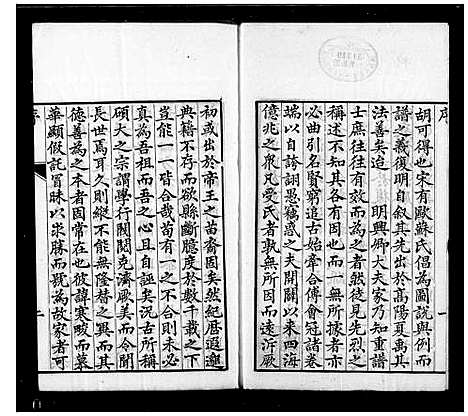 序
胡可得也宋有歐蘇氏倡為圖說與例而
譜之義復明自叙其先出於高陽夏禹其
法善矣迨　　明興鄉大夫家乃知重譜
士庶往往有效而為之者然徒見先烈之
稱述不同也因其各有而一無所據者亦
必曲引名賢窮追古始牽合傅會冠諸卷
端以自誇詡愚竊惑之夫開闢以來四海
億兆之衆凡受氏者孰無所因而遠泝厥
初或出於帝王之苗裔固矣然紀歷遐邈
典籍不存而欲縣斷臆度於數千載之下
豈能一一皆合哉苟有一之不合則未必
真為吾祖而吾心且自誣矣況古所稱
碩大之宗謂學行閥閱克濟厥美而令聞
長世焉耳久則縱不能無隆替之異而其
德善為之本者固常在也彼諱寒畯而慕
華顯假託冒昧以求勝而覬為故家者可
序
一
二